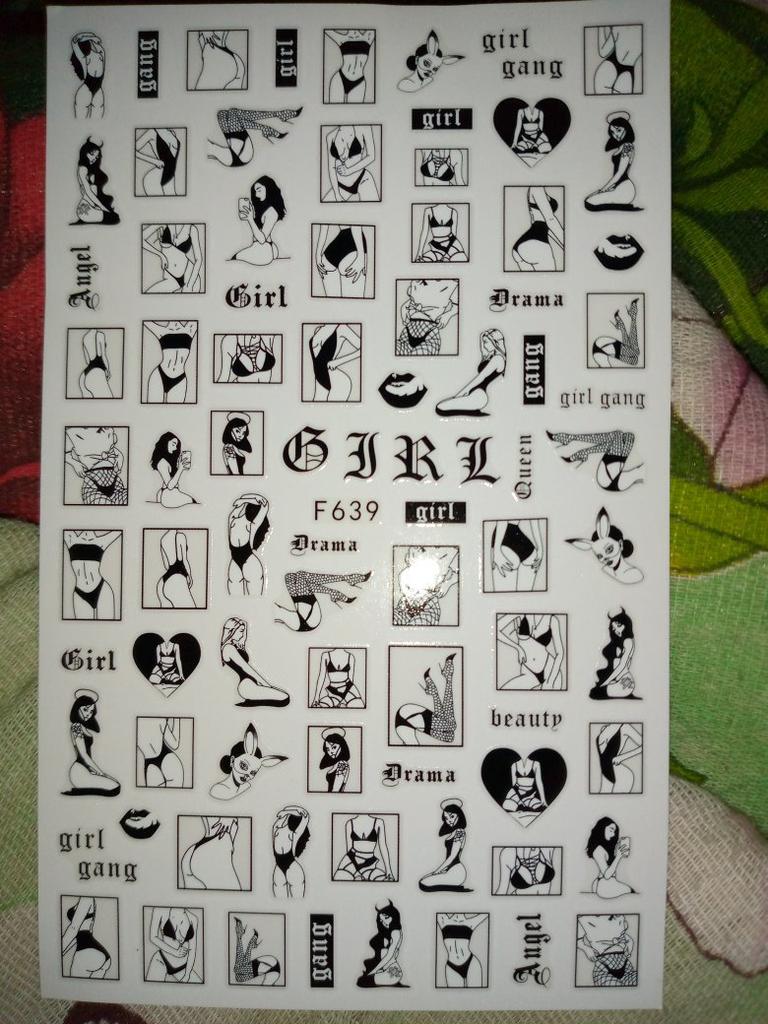 gang
girl
girl
gang
girl
Angel
Girl
Drama
gang
girl gang
GIRL
Queen
F639
girl
Drama
Girl
beauty
Drama
girl
gang
gang
Angel